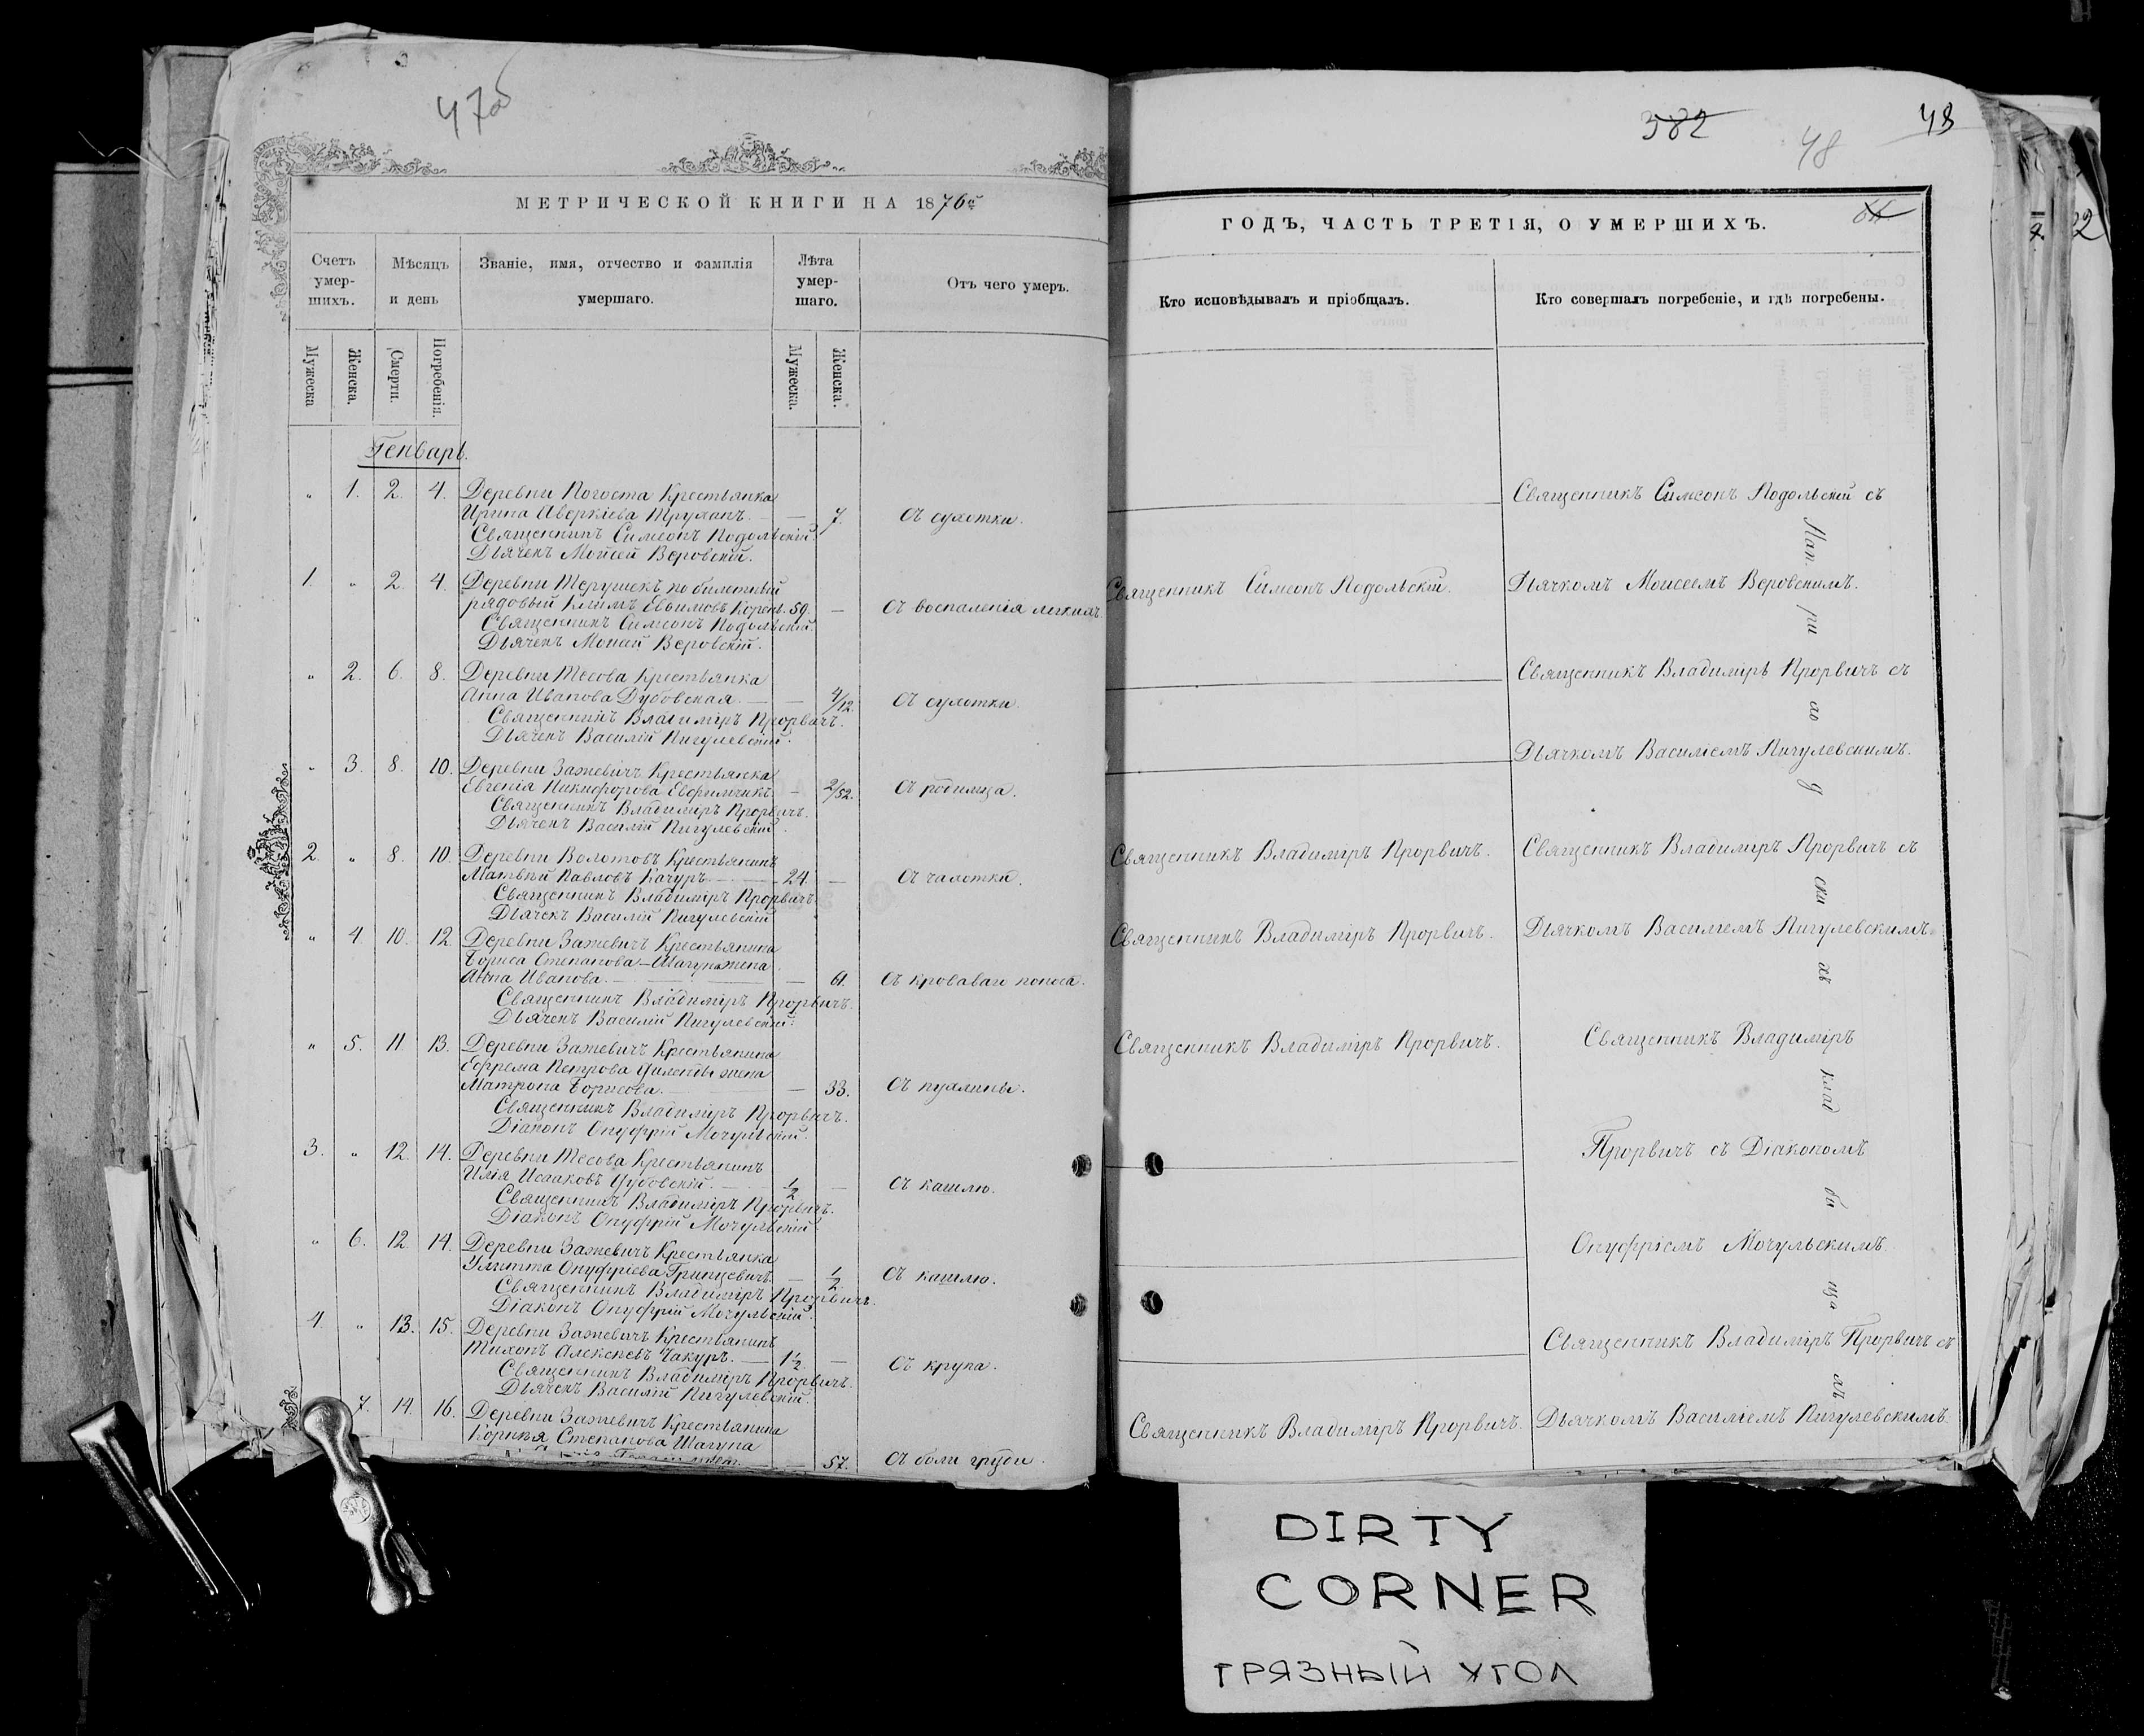 47об
МЕТРИЧЕСКОЙ КНИГИ НА 1876й
Счетъ умер-шихъ.
Мѣсяцъ и день
Званіе, имя, отчество и фамилія умершаго.
Лѣта умер-шаго.
Отъ чего умеръ.
Мужеска
Женска.
Смерти.
Погребенія.
Мужеска.
Женска.
Генварь.
„ 1. 2. 4. Деревни Погоста Крестьянка
Ирина Аверкіева Труханъ. — — 7. Съ сухотки.
Священникъ Симеонъ Подольскій.
Дьячекъ Моисей Веровскій.
1. „ 2. 4. Деревни Терушекъ по билетный
рядовый Климъ Евѳимовъ Корень. 59. — Съ воспаленія легкихъ.
Священникъ Симеонъ Подольскій.
Дьячекъ Моисей Веровскій.
„ 2. 6. 8. Деревни Тесова Крестьянка
Анна Иванова Дубовская. — — 4/12. Съ сухотки.
Священникъ Владиміръ Прорвичъ.
Дьячекъ Василій Пигулевскій.
„ 3. 8. 10. Деревни Зажевичъ Крестьянка
Евгенія Никифорова Евфимчикъ. — 2/52. Съ родимца.
Священникъ Владиміръ Прорвичъ.
Дьячекъ Василій Пигулевскій.
2. „ 8. 10. Деревни Волотовъ Крестьянинъ
Матвѣй Павловъ Качуръ — 24. — Съ чахотки.
Священникъ Владиміръ Прорвичъ.
Дьячекъ Василій Пигулевскій
„ 4 10. 12. Деревни Зажевичъ Крестьянина
Бориса Степанова Шагуна жена
Анна Иванова. — — 61. Съ кроваваго поноса.
Священникъ Владиміръ Прорвичъ.
Дьячекъ Василій Пигулевскій.
„ 5. 11. 13. Деревни Зажевичъ Крестьянина
Ефрема Петрова жена
Матрона Борисова. — 33. Съ пухлины.
Священникъ Владиміръ Прорвичъ.
Діаконъ Онуфрій Мочульскій.
3. „ 12. 14. Деревни Тесова Крестьянинъ
Илія Исааковъ Дубовскій. — 1/2 — Съ кашлю.
Священникъ Владиміръ Прорвичъ.
Діаконъ Онуфрій Мочульскій.
„ 6. 12. 14. Деревни Зажевичъ Крестьянка
Улитта Онуфріева Гринцевичъ. — 1/2 Съ кашлю.
Священникъ Владиміръ Прорвичъ.
Діаконъ Онуфрій Мочульскій.
4. „ 13. 15. Деревни Зажевичъ Крестьянинъ
Тихонъ Алексѣевъ Чакуръ. — 1 1/2. — Съ крупа.
Священникъ Владиміръ Прорвичъ.
Дьячекъ Василій Пигулевскій.
7. 14. 16. Деревни Зажевичъ Крестьянина
Корнія Степанова Шагуна
— 57. Съ боли груди.
382
48
48
ГОДЪ, ЧАСТЬ ТРЕТІЯ, О УМЕРШИХЪ.
Кто исповѣдывалъ и пріобщалъ.
Кто совершалъ погребеніе, и гдѣ погребены.
Священникъ Симеонъ Подольскій съ
Священникъ Симеонъ Подольскій.
Дьячкомъ Моисеемъ Веровскимъ.
Священникъ Владиміръ Прорвичъ съ
Дьячкомъ Василіемъ Пигулевскимъ.
Священникъ Владиміръ Прорвичъ.
Священникъ Владиміръ Прорвичъ съ
Священникъ Владиміръ Прорвичъ.
Дьячкомъ Василіемъ Пигулевскимъ.
Священникъ Владиміръ Прорвичъ.
Священникъ Владиміръ
Прорвичъ съ Діакономъ
Онуфріемъ Мочульскимъ.
Священникъ Владиміръ Прорвичъ съ
Священникъ Владиміръ Прорвичъ.
Дьячкомъ Василіемъ Пигулевскимъ.
На приходскихъ кладбищахъ
2
DIRTY
CORNER
ГРЯЗНЫЙ УГОЛ